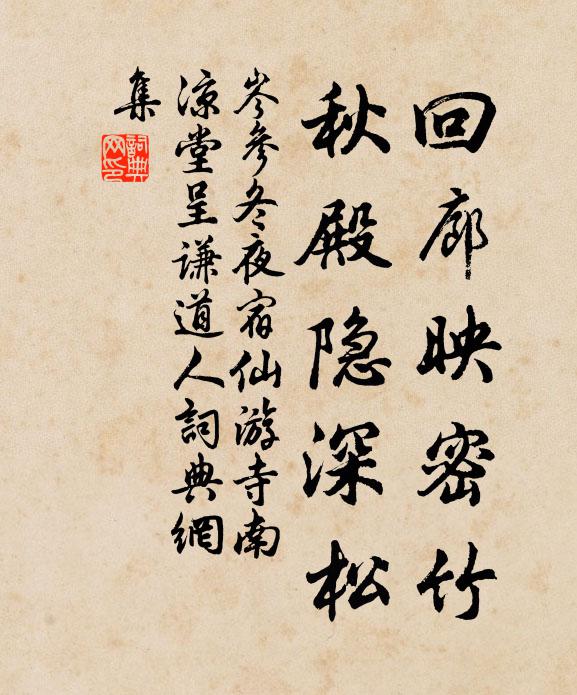 回廊映密竹
秋殿隐深松
岑参冬夜宿仙游寺南
凉堂呈谦道人詞典網
集
詞典
网印